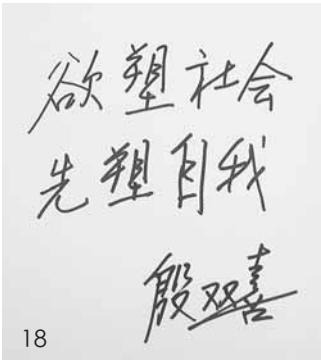 欲塑社会
先塑自我
殷双喜
18